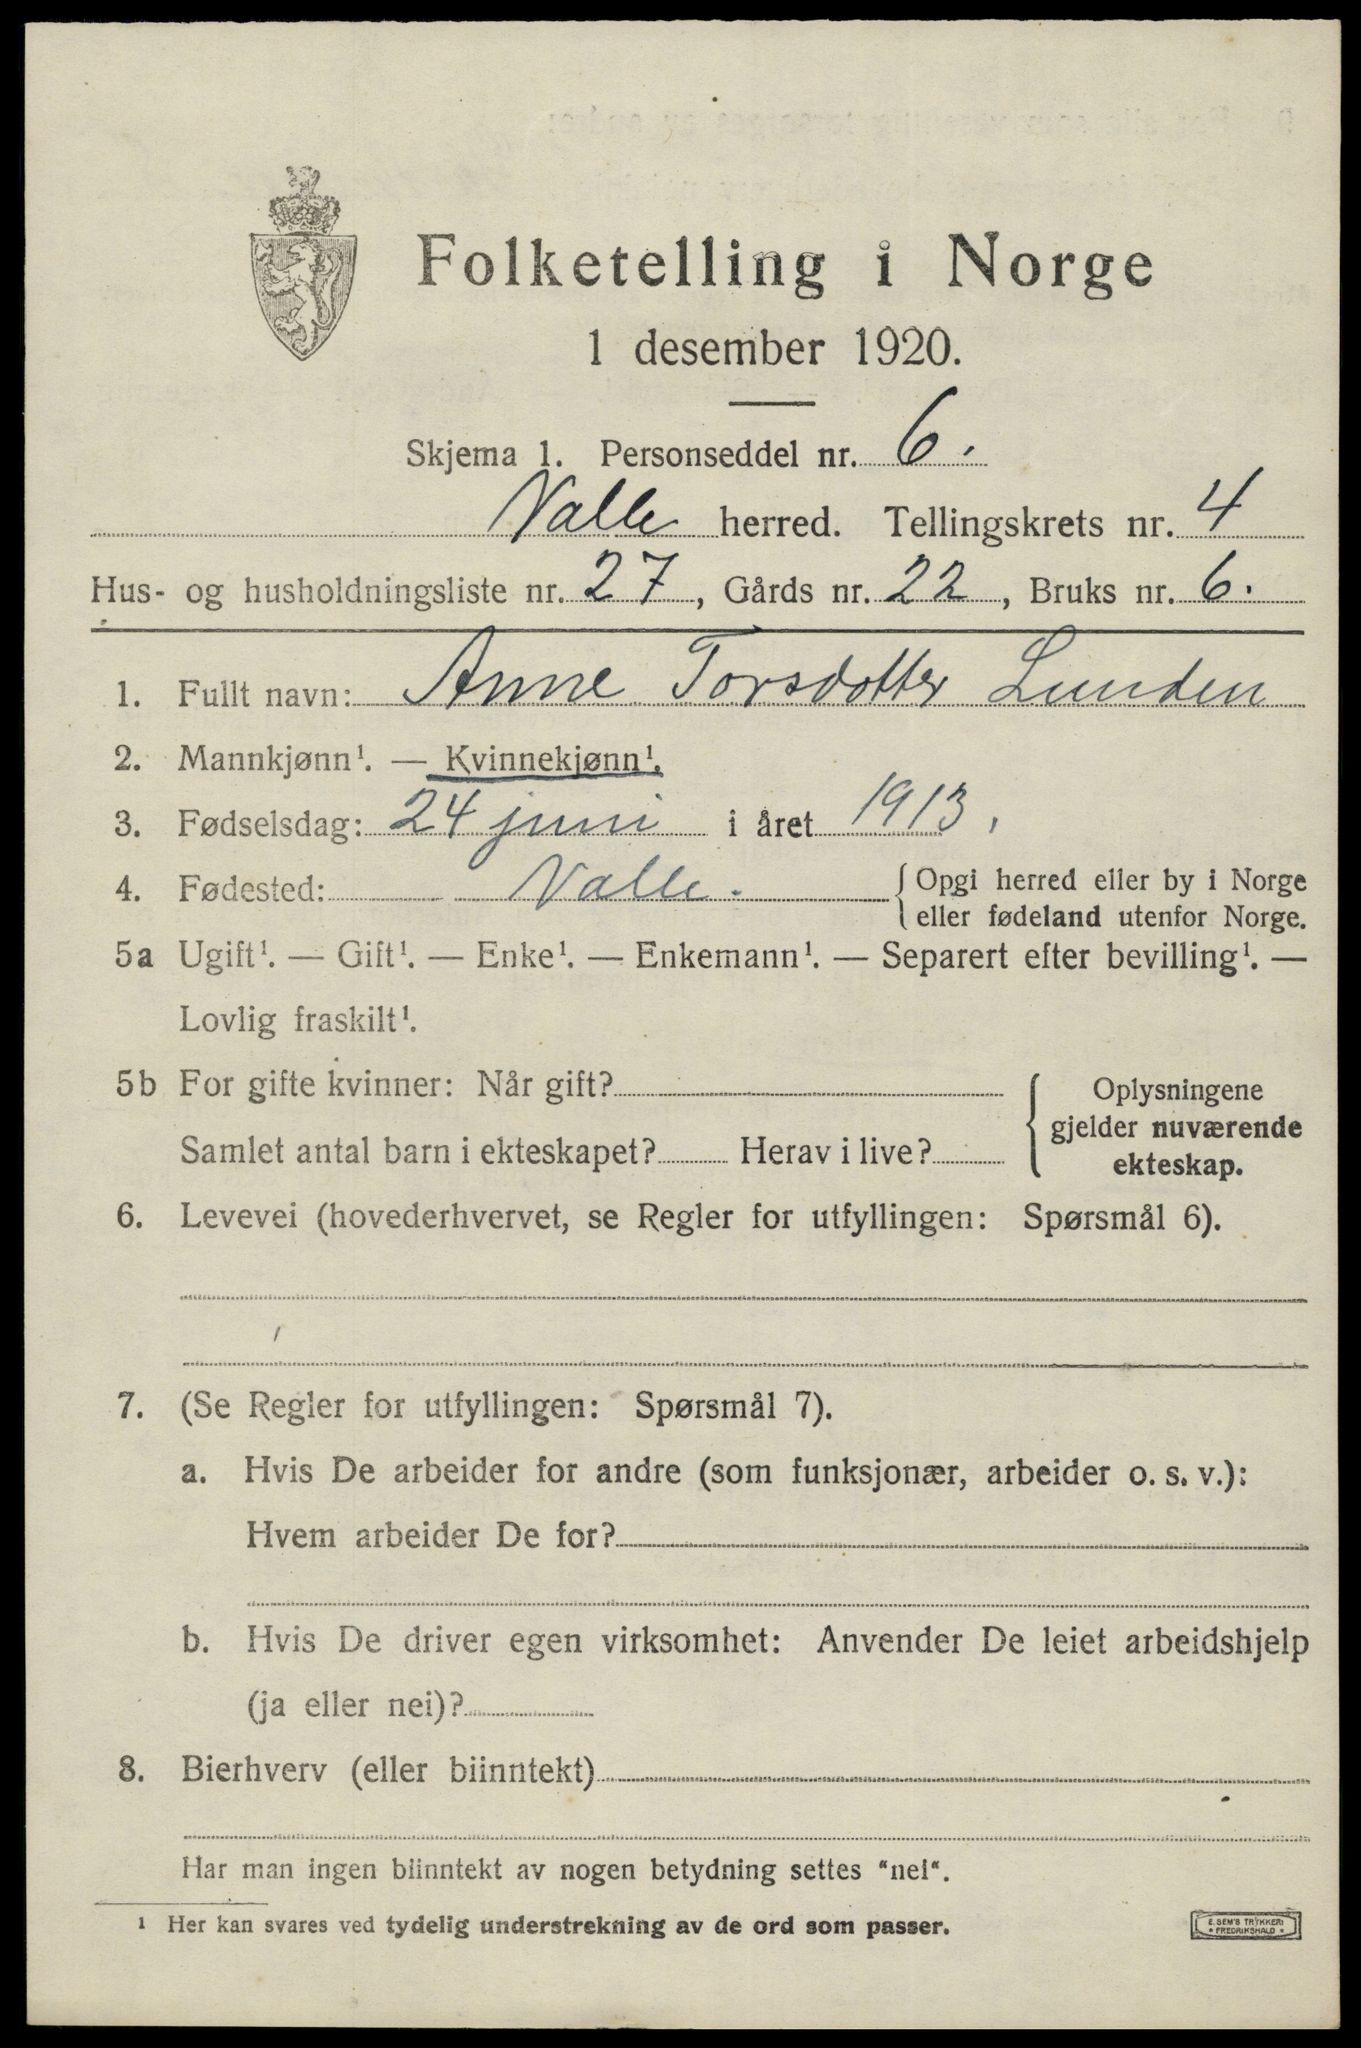 Folketelling i Norge
1 desember 1920.
Skjema 1. Personseddel nr. 6.
Valle herred. Tellingskrets nr. 4
Hus- og husholdningsliste nr. 27, Gårds nr. 22, Bruks nr. 6.
1. Fullt navn: Anne Torsdotter Lunden
2. Mannkjønn¹. — Kvinnekjønn¹.
3. Fødselsdag: 24 juni i året 1913.
4. Fødested: Valle. { Opgi herred eller by i Norge
eller fødeland utenfor Norge.
5a Ugift¹. — Gift¹. — Enke¹. — Enkemann¹. — Separert efter bevilling¹. —
Lovlig fraskilt¹.
5b For gifte kvinner: Når gift?
Samlet antal barn i ekteskapet? Herav i live?
Oplysningene
gjelder nuværende
ekteskap.
6. Levevei (hovederhvervet, se Regler for utfyllingen: Spørsmål 6).
7. (Se Regler for utfyllingen: Spørsmål 7).
a. Hvis De arbeider for andre (som funksjonær, arbeider o. s. v.):
Hvem arbeider De for?
b. Hvis De driver egen virksomhet: Anvender De leiet arbeidshjelp
(ja eller nei)?
8. Bierhverv (eller biinntekt)
Har man ingen biinntekt av nogen betydning settes "nei".
¹ Her kan svares ved tydelig understrekning av de ord som passer.
E. SEM'S TRYKKERI
* FREDRIKSHALD *